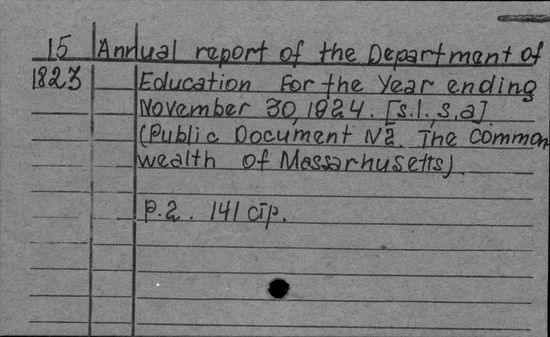 15 Annual report of the Department of
1823 Education For the Year ending
November 30, 1924. [s.l., s,a]
(Public Document N2. The Common
wealth of Massarhusetts).
p.2. 141 cтp.